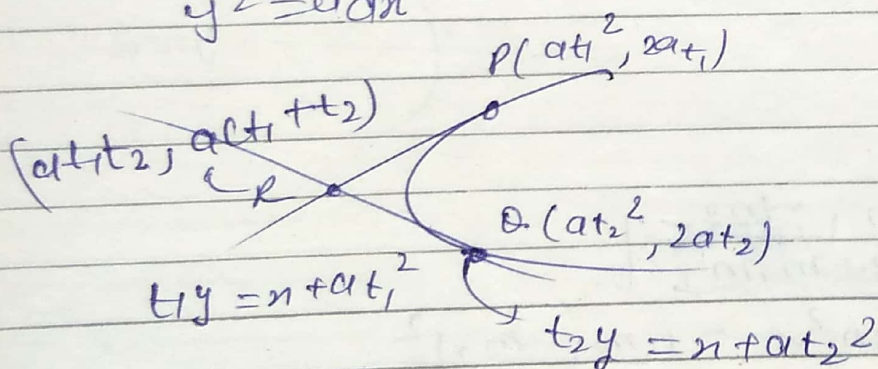 y² = 4ax
P(at₁², 2at₁)
(at₁t₂, a(t₁+t₂)
R
Q(at₂², 2at₂)
t₁y = x+at₁²
t₂y = x+at₂²